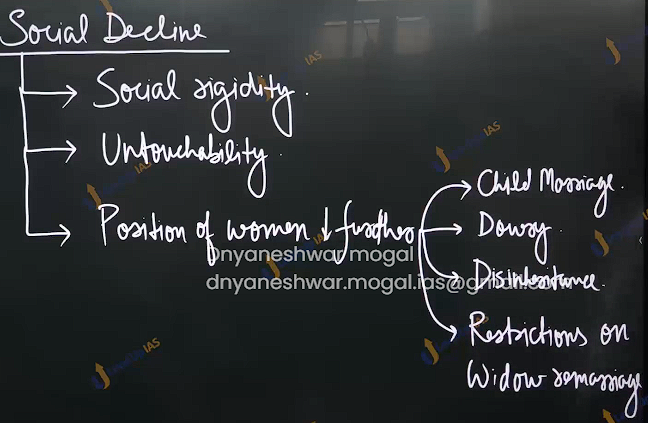 Social Decline
→ Social rigidity.
→ Untouchability.
→ Position of women ↓ further
→ Child Marriage.
→ Dowry.
→ Disinheritance.
→ Restrictions on
Widow remarriage
Dnyaneshwar.mogal
dnyaneshwar.mogal.ias@gmail.com
IAS
IAS
IAS
IAS